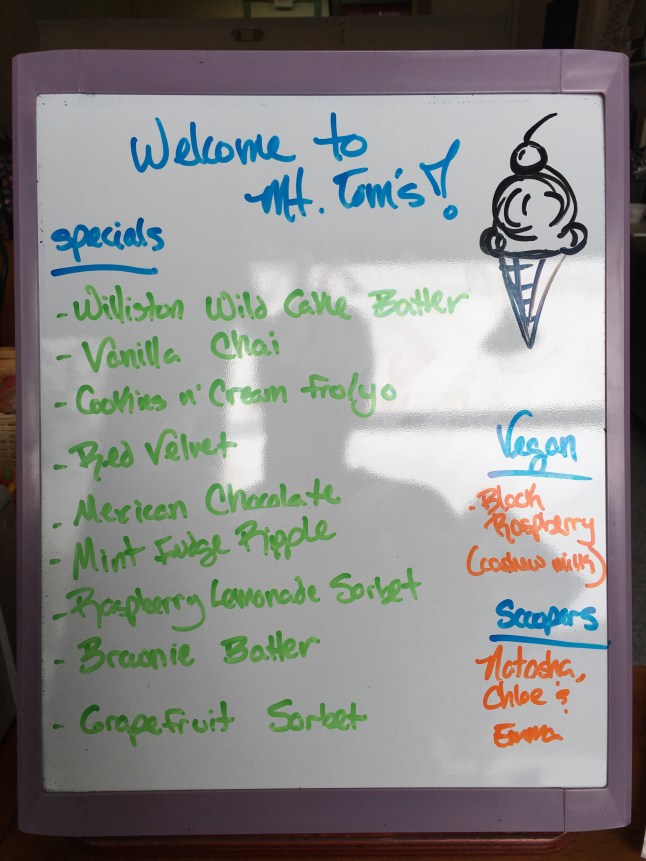 Welcome to
Mt. Tom's!
specials
- Williston Wild Cake Batter
- Vanilla Chai
- Cookies n' Cream fro/yo
- Red Velvet
- Mexican Chocolate
- Mint Fudge Ripple
- Raspberry Lemonade Sorbet
- Brownie Batter
- Grapefruit Sorbet
Vegan
- Black
Raspberry
(cashew milk)
Scoopers
Natasha,
Chloe &
Emma